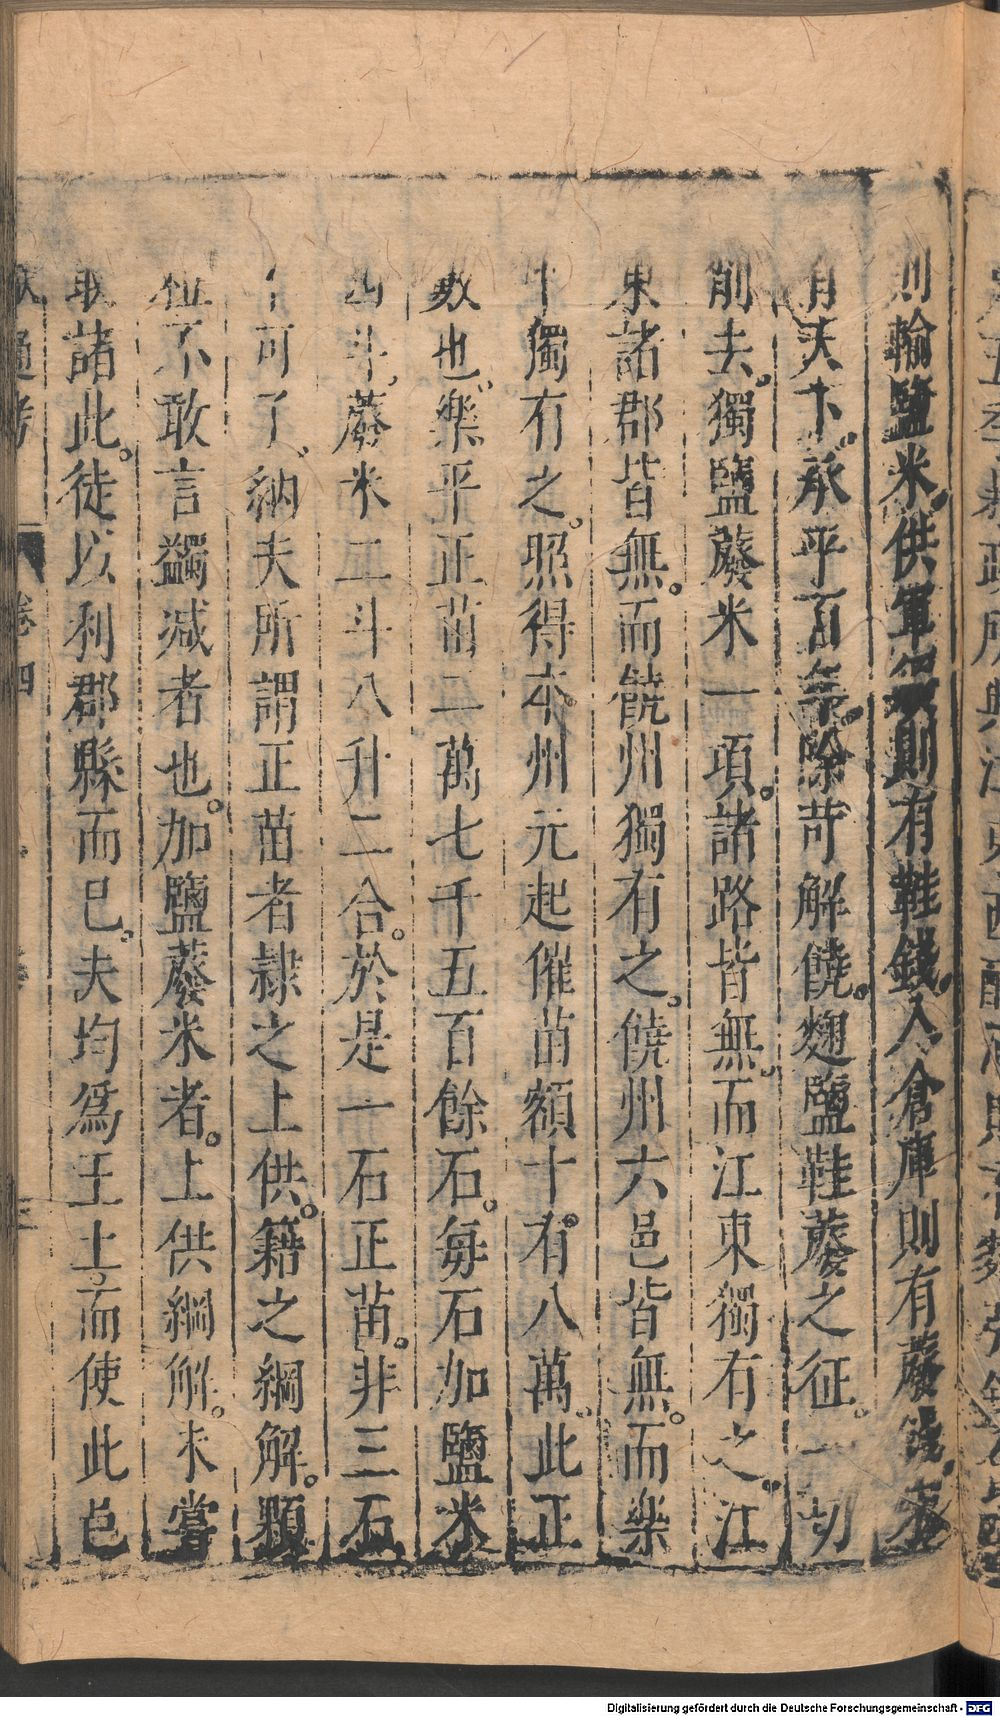 則輸鹽米供軍須則有鞋錢入倉庫則有䕠錢宋
有天下承平百年除苛解嬈麹鹽鞋䕠之征一切
削去獨鹽䕠米一項諸路皆無而江東獨有之江
東諸郡皆無而饒州獨有之饒州六邑皆無而樂
平獨有之照得本州元起催苗額十有八萬此正
數也樂平正苗二萬七千五百餘石每石加鹽米
四斗䕠米二斗八升二合於是一石正苗非三石
不可了納夫所謂正苗者隷之上供籍之綱解顆
粒不敢言蠲减者也加鹽䕠米者上供綱解未嘗
取諸此徒以利郡縣而已夫均爲王土而使此邑
獻通考 卷四